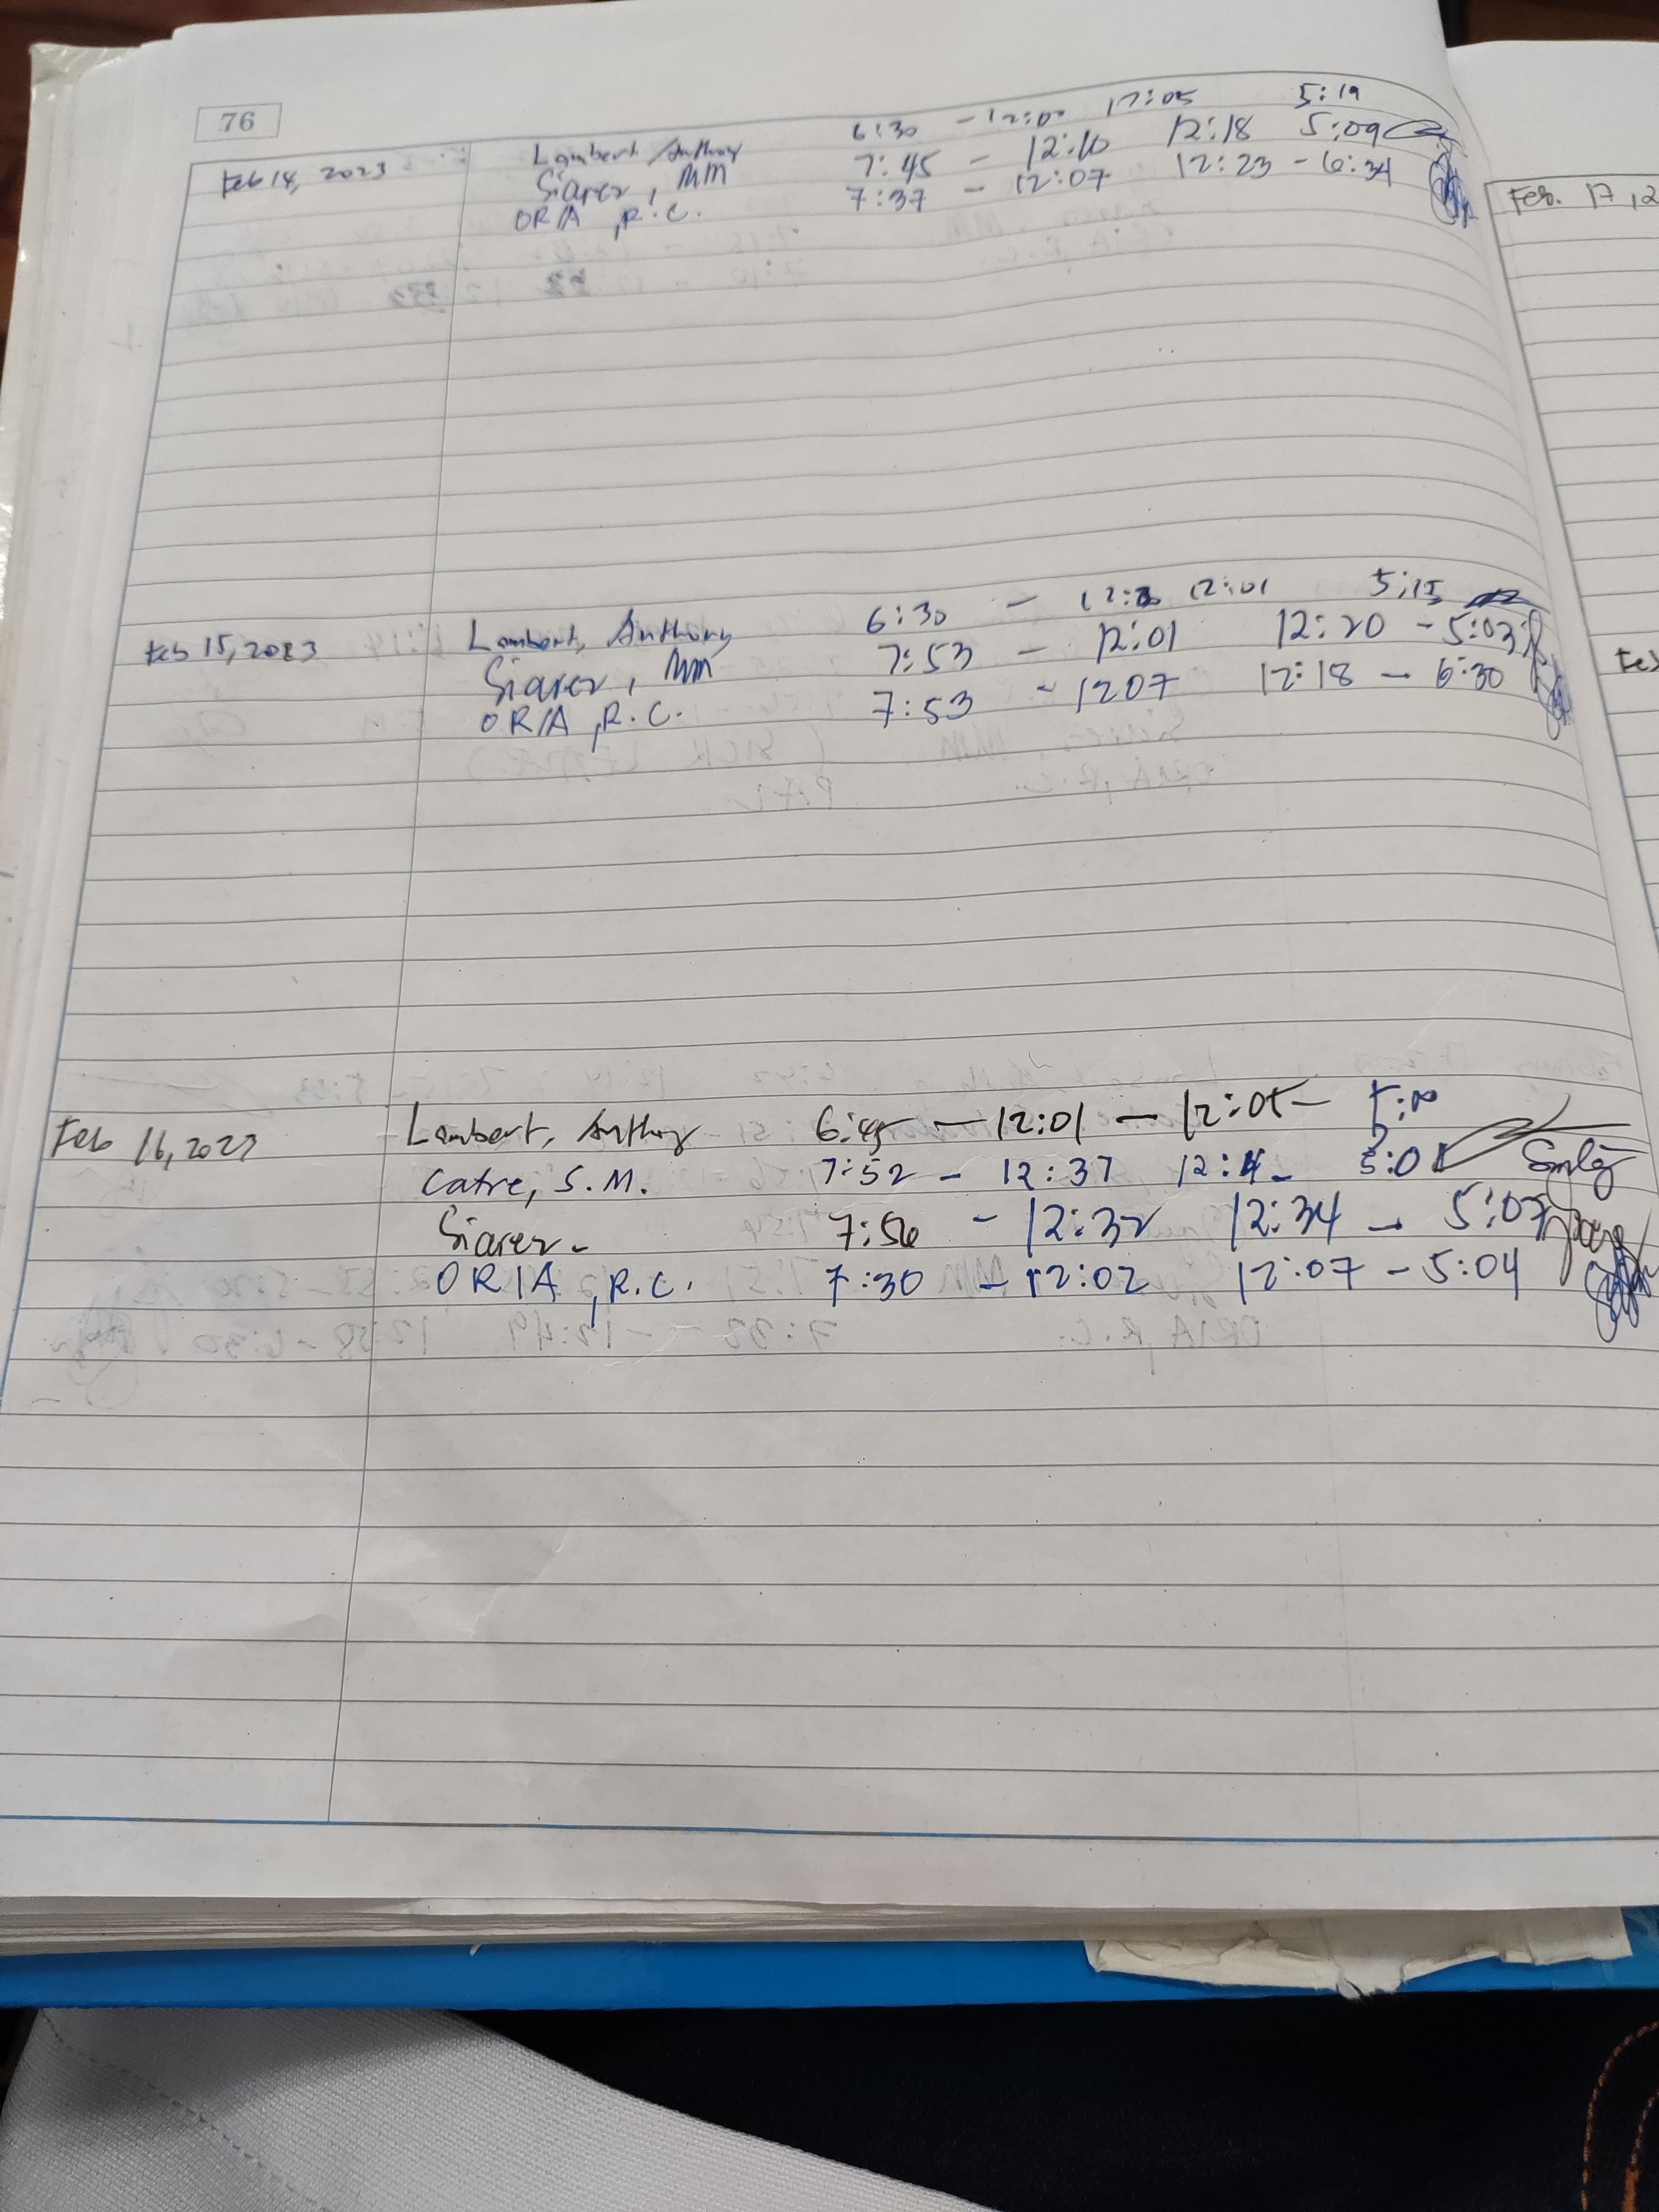 76
Feb 14, 2023 Lambert, Anthony 6:30 - 12:00 12:05 5:19
Siarez, MM 7:45 - 12:10 12:18 5:09
ORIA, R.C. 7:37 - 12:07 12:23 - 6:34
Feb 15, 2023 Lambert, Anthony 6:30 - 12:01 5:15
Siarez, MM 7:53 - 12:01 12:20 - 5:03
ORIA, R.C. 7:53 - 1207 12:18 - 6:30
Feb 16, 2023 Lambert, Anthony 6:45 - 12:01 - 12:05 - 5:00
Catre, S.M. 7:52 - 12:37 5:01
Siarez - 7:56 - 12:32 12:34 - 5:07
ORIA, R.C. 7:30 - 12:02 12:07 - 5:04
Feb. 17, 2
Feb